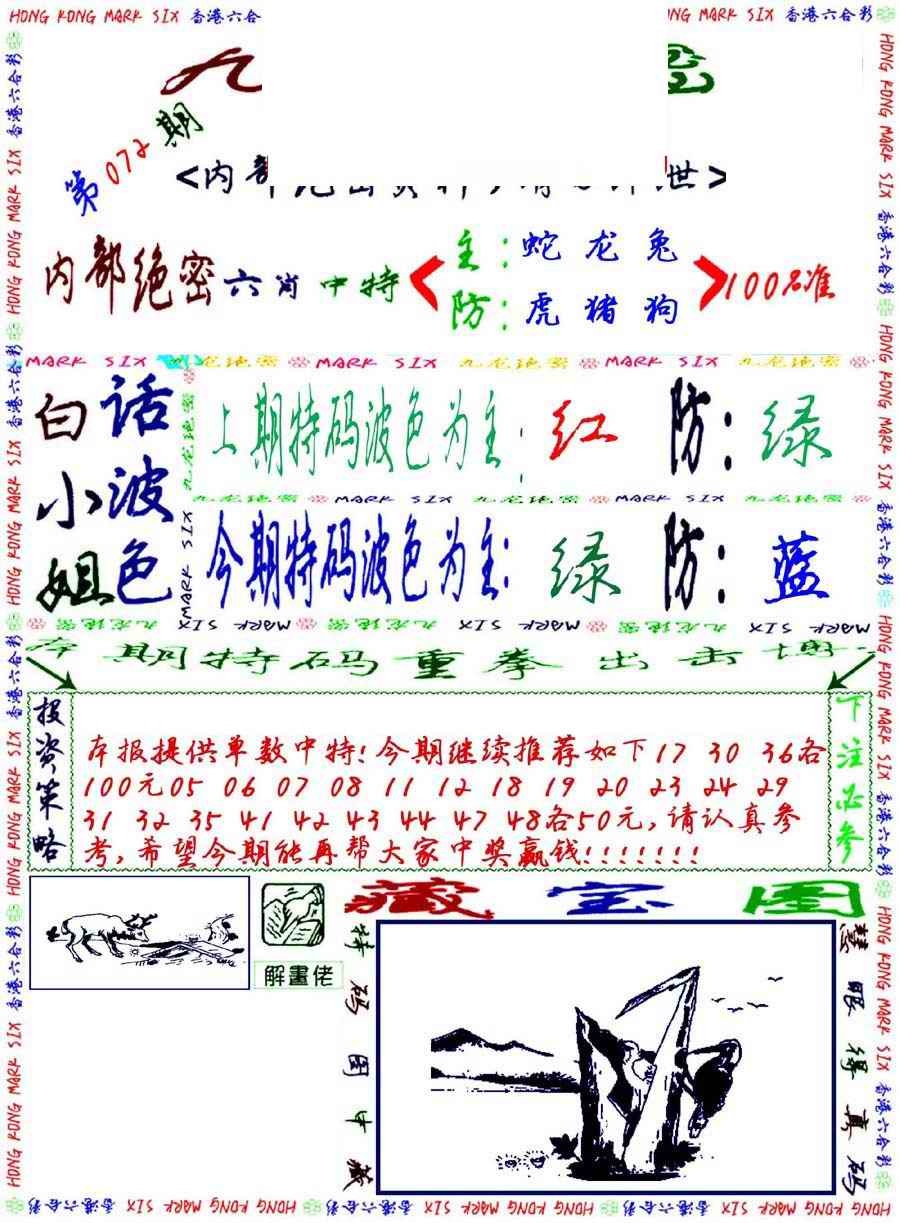 HONG KONG MARK SIX 香港六合彩
九
密
第072期
<内部
世>
内部绝密六肖中特
主:蛇 龙 兔
防:虎 猪 狗
100%准
MARK SIX 九龙绝密 MARK SIX 九龙绝密 MARK SIX 九龙绝密
白话
小波
姐色
上期特码波色为主:红 防:绿
九龙绝密 MARK SIX 九龙绝密 MARK SIX
今期特码波色为主:绿 防:蓝
MARK SIX 九龙绝密 MARK SIX 九龙绝密 MARK SIX
本期特码重拳出击
投资策略
本报提供单数中特!今期继续推荐如下17 30 36各
100元05 06 07 08 11 12 18 19 20 23 24 29
31 32 35 41 42 43 44 47 48各50元,请认真参
考,希望今期能再帮大家中奖赢钱!!!!!!!
下注必参
解畫佬
藏宝图
特码图中藏
慧眼得真码
HONG KONG MARK SIX 香港六合彩